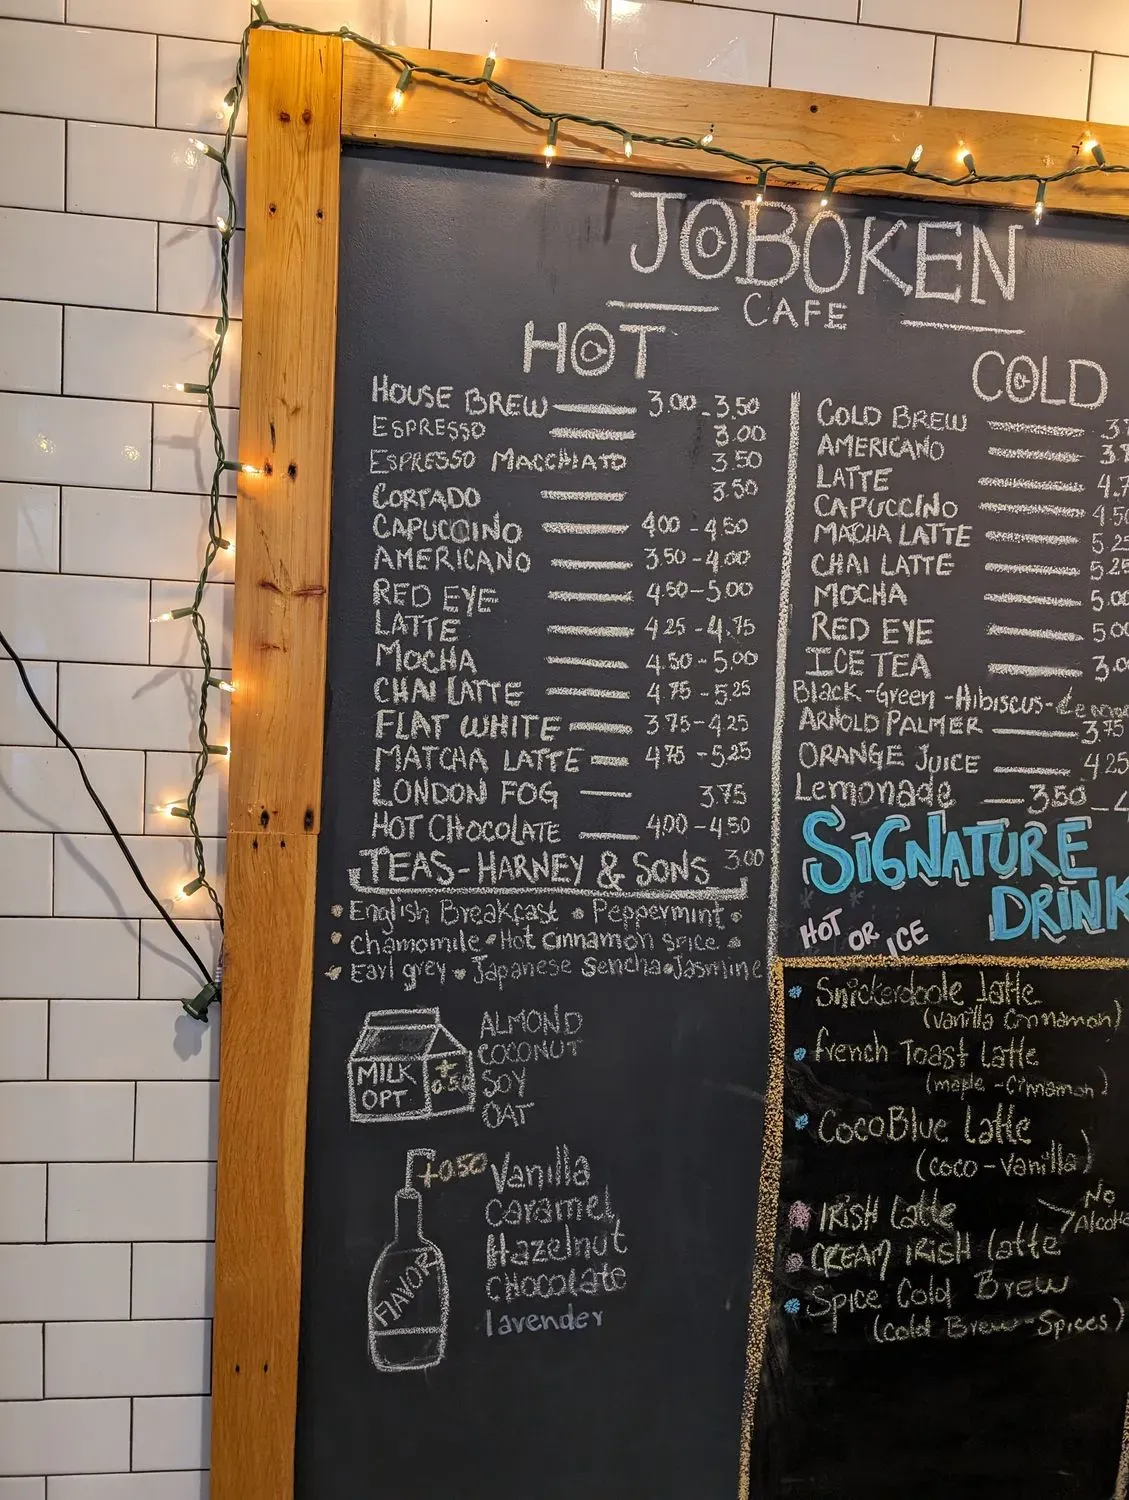 JOBOKEN
CAFE
HOT
HOUSE BREW 3.00-3.50
ESPRESSO 3.00
ESPRESSO MACCHIATO 3.50
CORTADO 3.50
CAPUCCINO 4.00-4.50
AMERICANO 3.50-4.00
RED EYE 4.50-5.00
LATTE 4.25-4.75
MOCHA 4.50-5.00
CHAI LATTE 4.75-5.25
FLAT WHITE 3.75-4.25
MATCHA LATTE 4.75-5.25
LONDON FOG 3.75
HOT CHOCOLATE 4.00-4.50
TEAS-HARNEY & SONS 3.00
• English Breakfast • Peppermint •
• chamomile • Hot Cinnamon Spice •
• Earl grey • Japanese Sencha • Jasmine
MILK
OPT.
+
0.50
ALMOND
COCONUT
SOY
OAT
+0.50
FLAVOR
Vanilla
Caramel
Hazelnut
CHOCOLATE
lavender
COLD
COLD BREW
AMERICANO
LATTE
CAPUCCINO
MACHA LATTE 5.25
CHAI LATTE 5.25
MOCHA 5.00
RED EYE 5.00
ICE TEA
Black-Green-Hibiscus-
ARNOLD PALMER 3.75
ORANGE JUICE 4.25
Lemonade 3.50-
SIGNATURE
DRINK
HOT OR ICE
Snickerdoole latte
(Vanilla Cinnamon)
french Toast Latte
(maple-Cinnamon)
CocoBlue Latte
(coco-vanilla)
IRISH Latte
CREAM IRISH latte
No
Spice Cold Brew
(cold Brew-Spices)